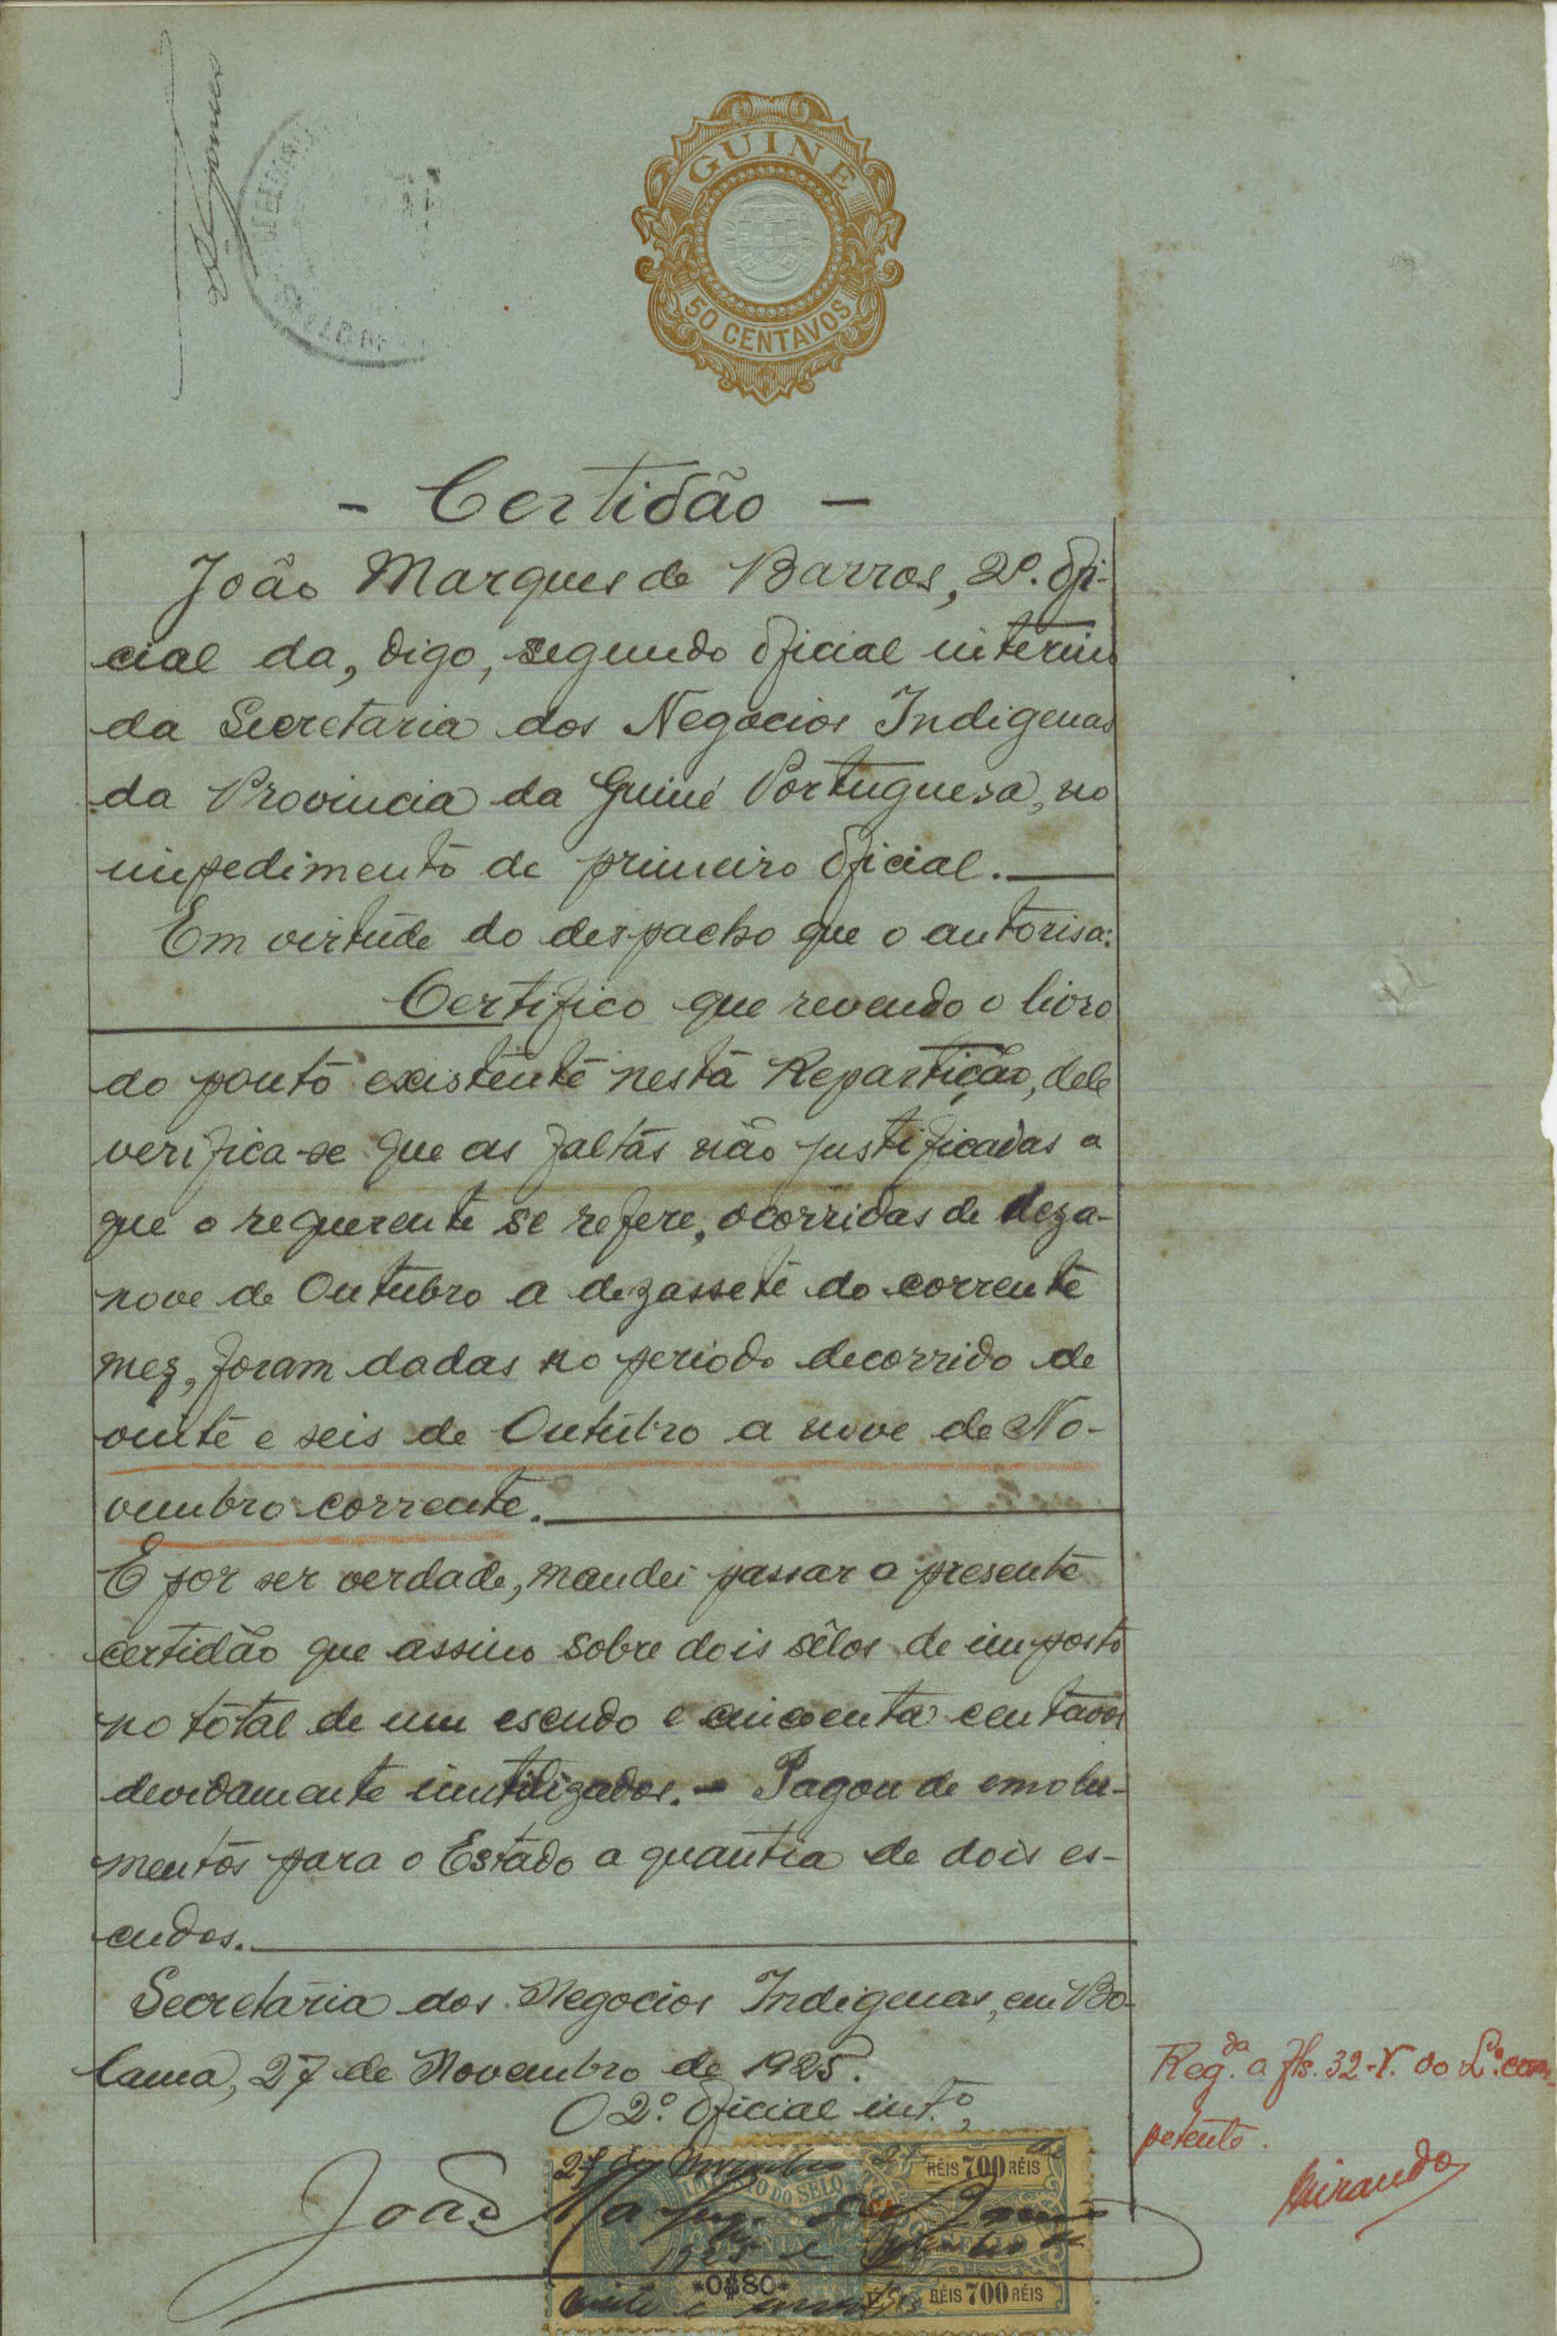 GUINÉ
50 CENTAVOS
- Certidão -
João Marques de Barros, 2º. ofi-
cial da, digo, segundo oficial interino
da Secretaria dos Negocios Indigenas
da Provincia da Guiné Portuguesa, no
impedimento de primeiro oficial.
Em virtude do despacho que o autorisa:
Certifico que revendo o livro
do ponto existente nesta Repartição, dele
verifica-se que as faltas não justificadas a
que o requerente se refere, ocorridas de deza-
nove de Outubro a dezassete do corrente
mez, foram dadas no periodo decorrido de
vinte e seis de Outubro a nove de No-
vembro corrente.
E por ser verdade, mandei passar a presente
certidão que assino sobre dois sêlos de imposto
no total de um escudo e cincoenta centavos
devidamente inutilizados. - Pagou de emolu-
mentos para o Estado a quantia de dois es-
cudos.
Secretaria dos Negocios Indigenas, em Bo-
lama, 27 de Novembro de 1925.
O 2º. Oficial intº.,
Reg.da a fls. 32-V. do Lº. com-
petente.
Miranda
27 de Novembro
RÉIS 700 RÉIS
IMPOSTO DO SELO
João Marques de Barros
1925
0$80
RÉIS 700 RÉIS